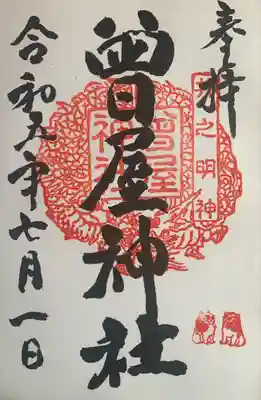 奉拝
曽屋神社
令和五年七月一日
之明神
曽屋
神社